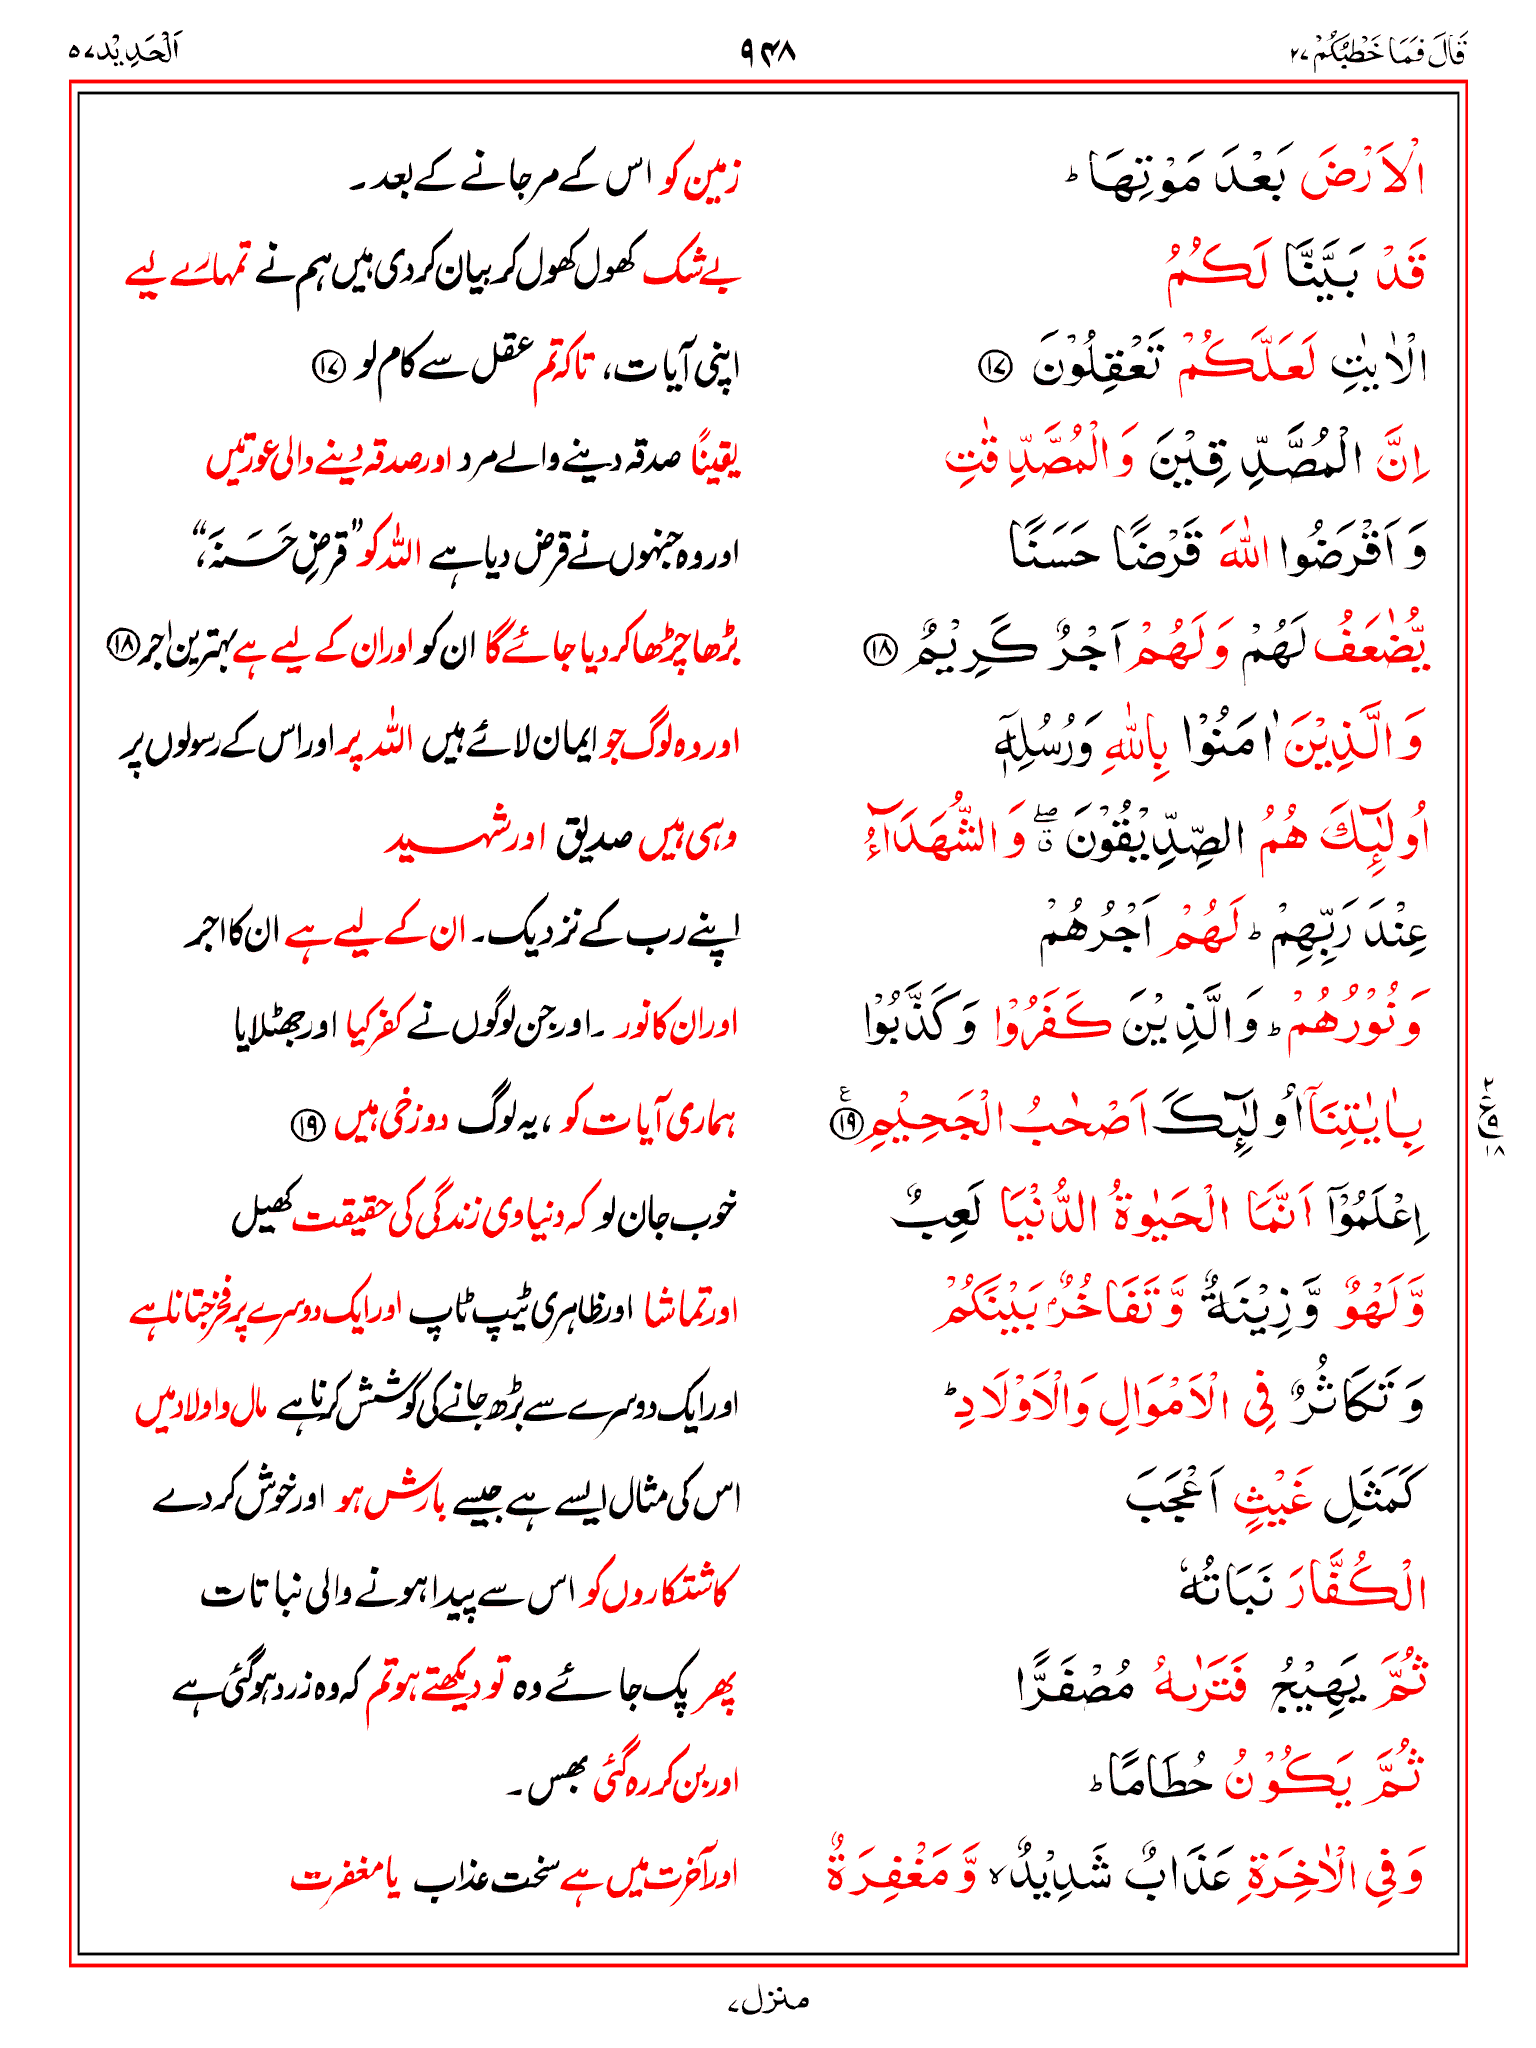 قَالَ فَمَا خَطْبُكُمْ ۲۷ ۹۴۸ اَلْحَدِيْد ۵۷
الْاَرْضَ بَعْدَ مَوْتِهَا ؕ زمین کو اس کے مرجانے کے بعد۔
قَدْ بَيَّنَّا لَكُمُ بے شک کھول کھول کر بیان کردی ہیں ہم نے تمہارے لیے
الْاٰيٰتِ لَعَلَّكُمْ تَعْقِلُوْنَ ۱۷ اپنی آیات، تاکہ تم عقل سے کام لو ۱۷
اِنَّ الْمُصَّدِّقِيْنَ وَالْمُصَّدِّقٰتِ یقیناً صدقہ دینے والے مرد اور صدقہ دینے والی عورتیں
وَاَقْرَضُوا اللّٰهَ قَرْضًا حَسَنًا اور وہ جنہوں نے قرض دیا ہے اللہ کو ”قرضِ حَسنہَ“،
يُّضٰعَفُ لَهُمْ وَلَهُمْ اَجْرٌ كَرِيْمٌ ۱۸ بڑھا چڑھا کر دیا جائے گا ان کو اور ان کے لیے ہے بہترین اجر ۱۸
وَالَّذِيْنَ اٰمَنُوْا بِاللّٰهِ وَرُسُلِهٖۤ اور وہ لوگ جو ایمان لائے ہیں اللہ پر اور اس کے رسولوں پر
اُولٰٓئِكَ هُمُ الصِّدِّيْقُوْنَ ۖۗ وَالشُّهَدَآءُ وہی ہیں صدیق اور شہید
عِنْدَ رَبِّهِمْ ؕ لَهُمْ اَجْرُهُمْ اپنے رب کے نزدیک۔ ان کے لیے ہے ان کا اجر
وَنُوْرُهُمْ ؕ وَالَّذِيْنَ كَفَرُوْا وَكَذَّبُوْا اور ان کا نور ۔اور جن لوگوں نے کفر کیا اور جھٹلایا
بِاٰيٰتِنَاۤ اُولٰٓئِكَ اَصْحٰبُ الْجَحِيْمِ ۱۹ ع ہماری آیات کو ،یہ لوگ دوزخی ہیں ۱۹
۲ ع ۹ ۱۸
اِعْلَمُوْۤا اَنَّمَا الْحَيٰوةُ الدُّنْيَا لَعِبٌ خوب جان لو کہ دنیاوی زندگی کی حقیقت کھیل
وَّلَهْوٌ وَّزِيْنَةٌ وَّتَفَاخُرٌۢ بَيْنَكُمْ اور تماشا اور ظاہری ٹیپ ٹاپ اور ایک دوسرے پر فخر جتانا ہے
وَتَكَاثُرٌ فِي الْاَمْوَالِ وَالْاَوْلَادِ ؕ اور ایک دوسرے سے بڑھ جانے کی کوشش کرنا ہے مال و اولاد میں
كَمَثَلِ غَيْثٍ اَعْجَبَ اس کی مثال ایسے ہے جیسے بارش ہو اور خوش کر دے
الْكُفَّارَ نَبَاتُهٗ کاشتکاروں کو اس سے پیدا ہونے والی نباتات
ثُمَّ يَهِيْجُ فَتَرٰىهُ مُصْفَرًّا پھر پک جائے وہ تو دیکھتے ہو تم کہ وہ زرد ہوگئی ہے
ثُمَّ يَكُوْنُ حُطَامًا ؕ اور بن کر رہ گئی بھس۔
وَفِي الْاٰخِرَةِ عَذَابٌ شَدِيْدٌ ۙ وَّمَغْفِرَةٌ اور آخرت میں ہے سخت عذاب یا مغفرت
منزل ۷